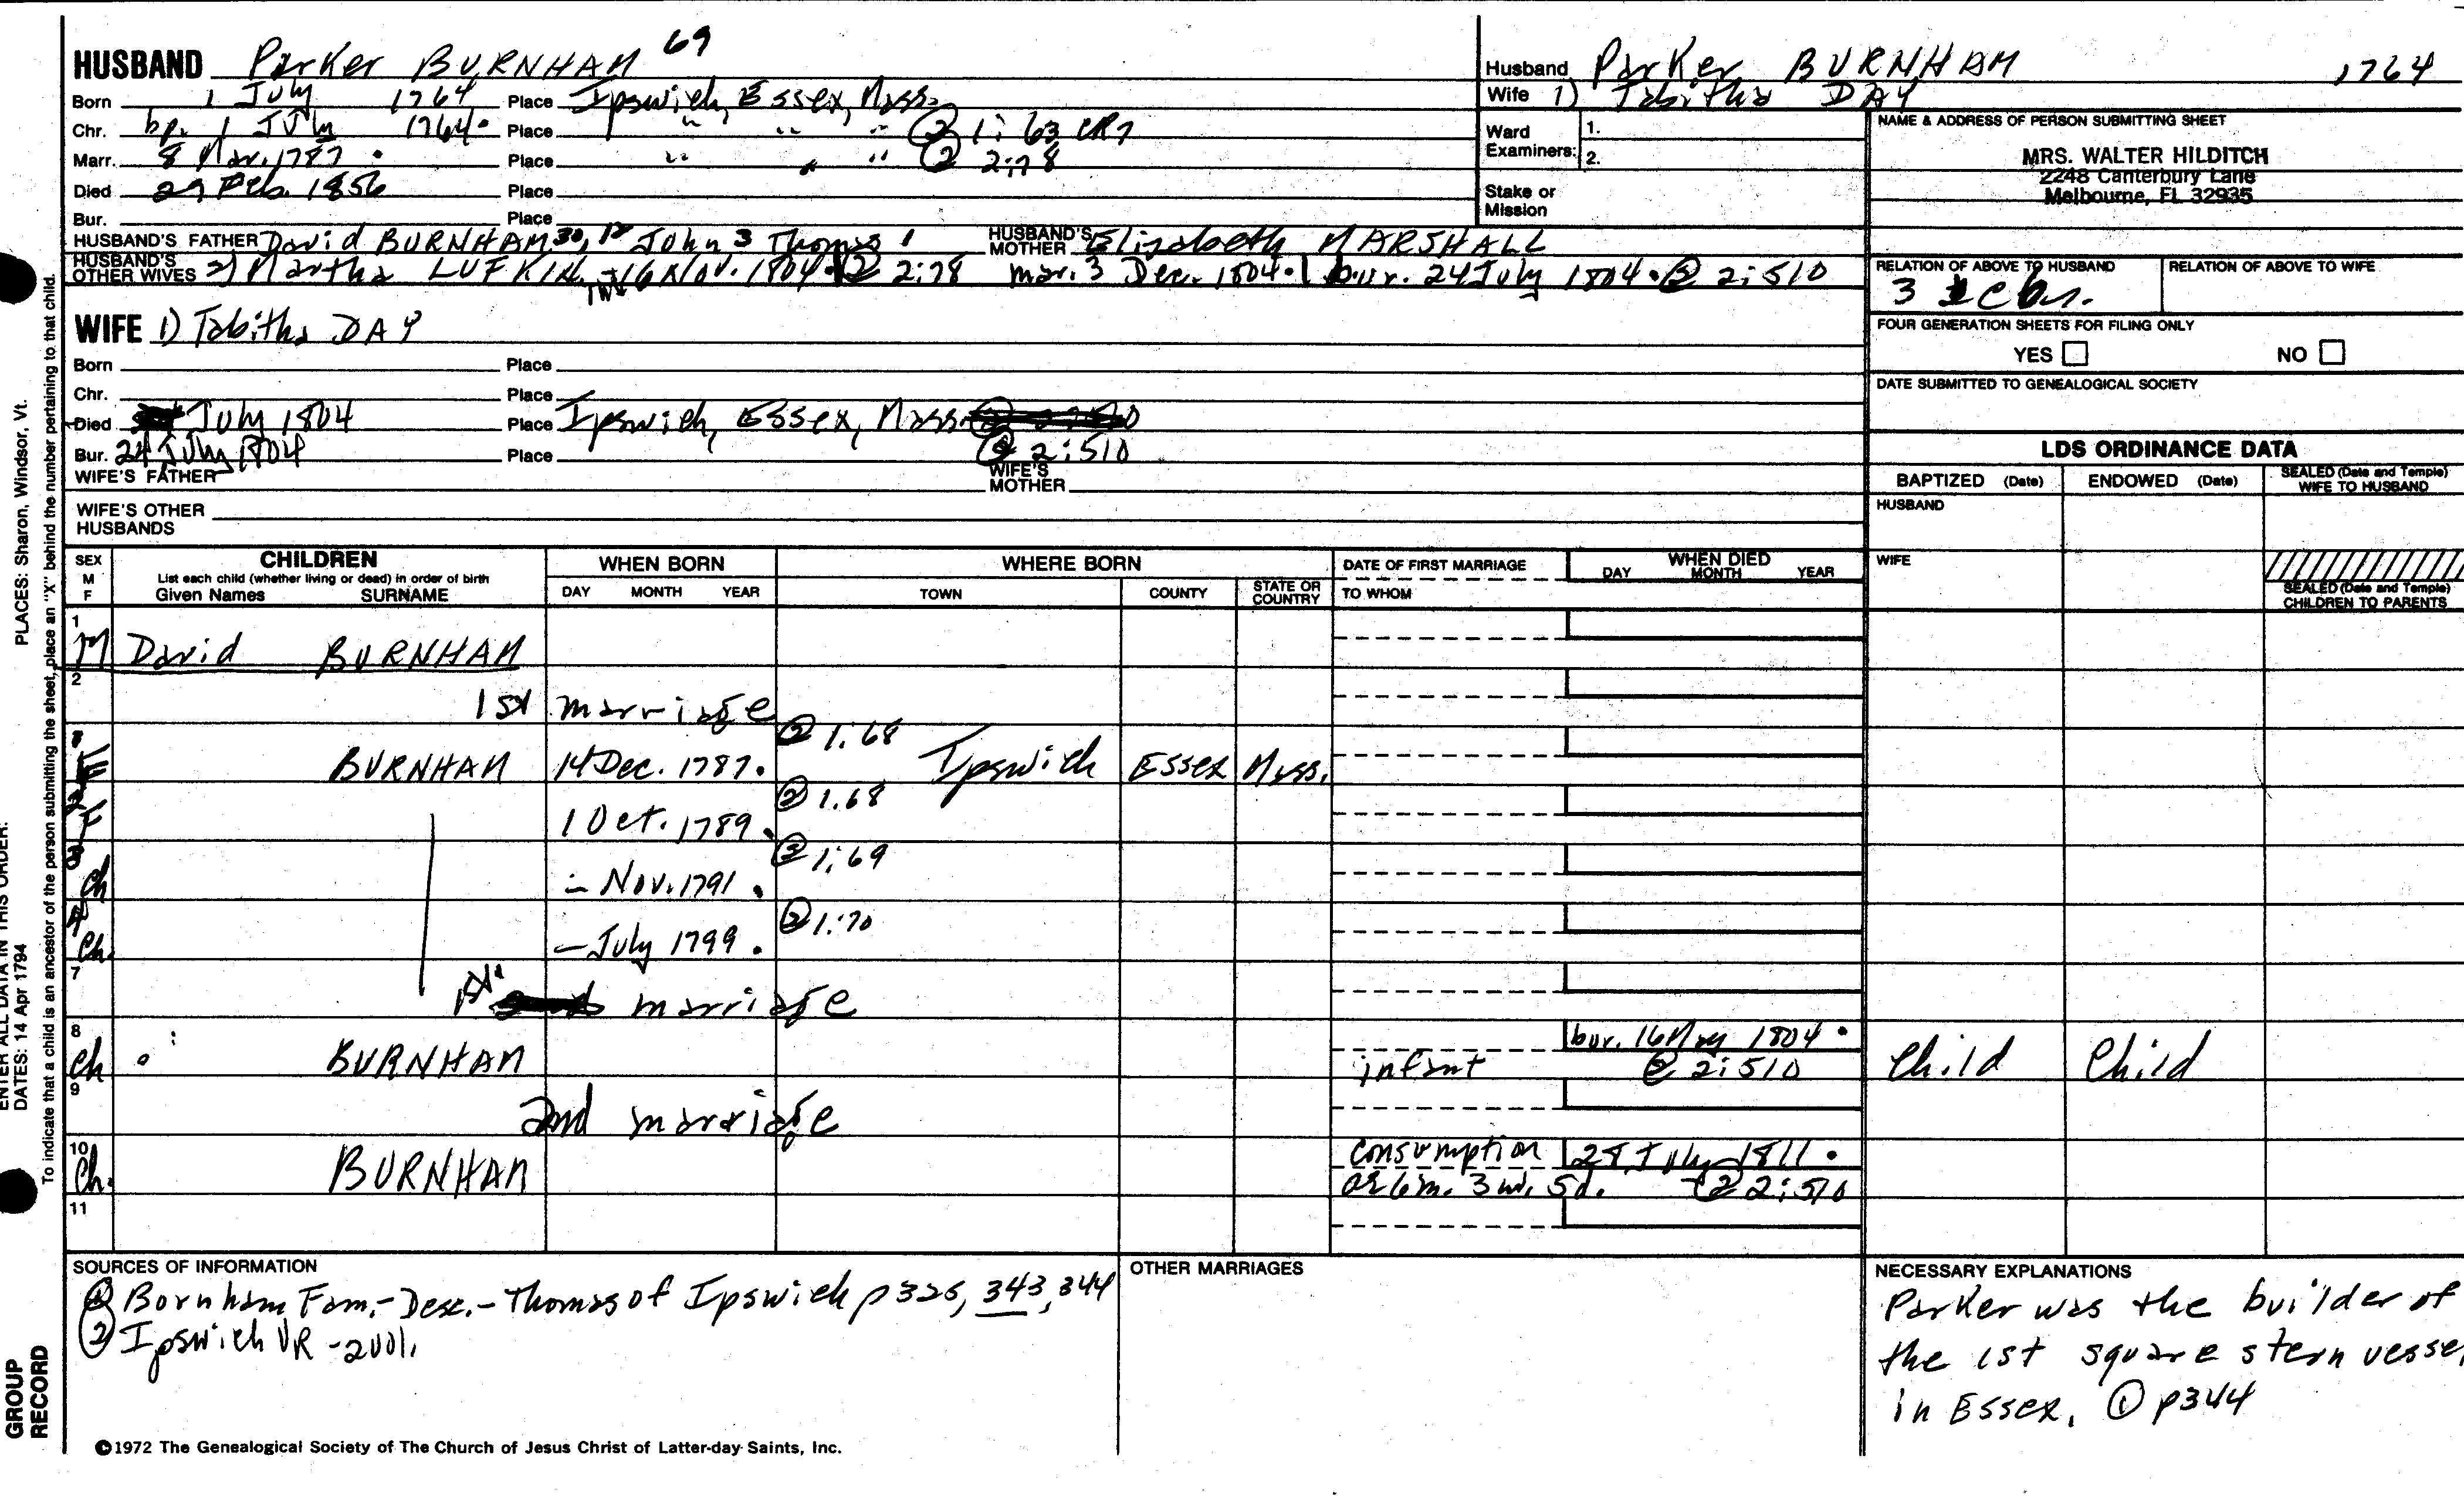 HUSBAND Parker BURNHAM 69
Born 1 July 1764 Place Ipswich, Essex, Mass.
Chr. bp. 1 July 1764. Place " " " ② 1:63 CR7
Marr. 8 Mar. 1787. Place " " " ② 2:78
Died 29 Feb. 1856 Place
Bur. Place
HUSBAND'S FATHER David BURNHAM 30, 12 John 3 Thomas 1 HUSBAND'S MOTHER Elizabeth MARSHALL
HUSBAND'S OTHER WIVES 2) Martha LUFKIN, int 16 Nov. 1804. ② 2:78 mar. 3 Dec. 1804. | bur. 24 July 1804. ② 2:510
WIFE 1) Tabitha DAY
Born Place
Chr. Place
Died July 1804 Place Ipswich, Essex, Mass.
Bur. 24 July 1804 Place ② 2:510
WIFE'S FATHER WIFE'S MOTHER
WIFE'S OTHER HUSBANDS
Husband Parker BURNHAM 1764
Wife 1) Tabitha DAY
Ward Examiners: 1.
2.
Stake or Mission
NAME & ADDRESS OF PERSON SUBMITTING SHEET
MRS. WALTER HILDITCH
2248 Canterbury Lane
Melbourne, FL 32935
RELATION OF ABOVE TO HUSBAND RELATION OF ABOVE TO WIFE
3
FOUR GENERATION SHEETS FOR FILING ONLY
YES NO
DATE SUBMITTED TO GENEALOGICAL SOCIETY
LDS ORDINANCE DATA
BAPTIZED (Date) ENDOWED (Date) SEALED (Date and Temple) WIFE TO HUSBAND
HUSBAND
WIFE
SEALED (Date and Temple) CHILDREN TO PARENTS
SEX M F CHILDREN WHEN BORN WHERE BORN DATE OF FIRST MARRIAGE WHEN DIED
List each child (whether living or dead) in order of birth
Given Names SURNAME DAY MONTH YEAR TOWN COUNTY STATE OR COUNTRY TO WHOM DAY MONTH YEAR
1 M David BURNHAM
2 1st marriage
1 F BURNHAM 14 Dec. 1787. ② 1:68 Ipswich Essex Mass.
2 F 1 Oct. 1789. ② 1.68
3 Ch - Nov. 1791. ② 1:69
4 Ch. - July 1799. ② 1:70
7 1st marriage
8 Ch BURNHAM infant bur. 16 May 1804. ② 2:510 Child Child
9 2nd marriage
10 Ch. BURNHAM consumption 28 July 1811.
ae 6m. 3w. 5d. ② 2:510
11
SOURCES OF INFORMATION
① Burnham Fam.-Desc.-Thomas of Ipswich p 325, 343, 344
② Ipswich VR -2vol.
OTHER MARRIAGES
NECESSARY EXPLANATIONS
Parker was the builder of
the 1st square stern vessel
in Essex. ① p344
©1972 The Genealogical Society of The Church of Jesus Christ of Latter-day Saints, Inc.
ENTER ALL DATA IN THIS ORDER:
DATES: 14 Apr 1794 PLACES: Sharon, Windsor, Vt.
To indicate that a child is an ancestor of the person submitting the sheet, place an "X" behind the number pertaining to that child.
GROUP
RECORD